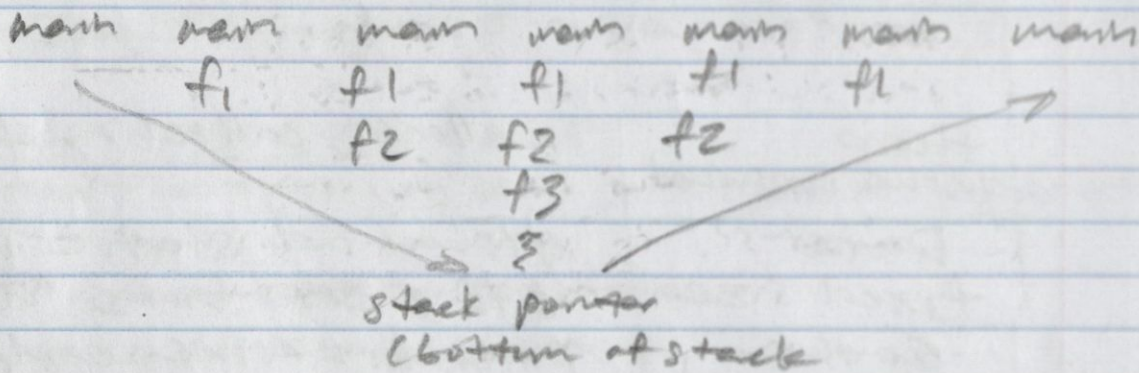 main main main main main main main
f1 f1 f1 f1 f1
f2 f2 f2
f3
stack pointer
(bottom of stack